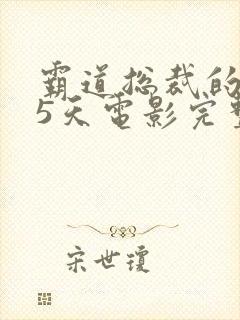 霸道总裁的
5天电影完整
宋世琼